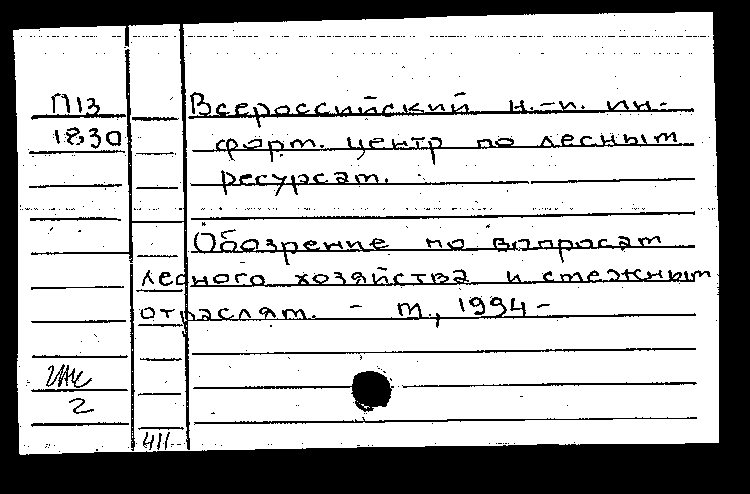 П13
1830
Всероссийский н.-и. ин-
форм. центр по лесным
ресурсам.
Обозрение по вопросам
лесного хозяйства и смежным
отраслям. - М., 1994 -
2
411